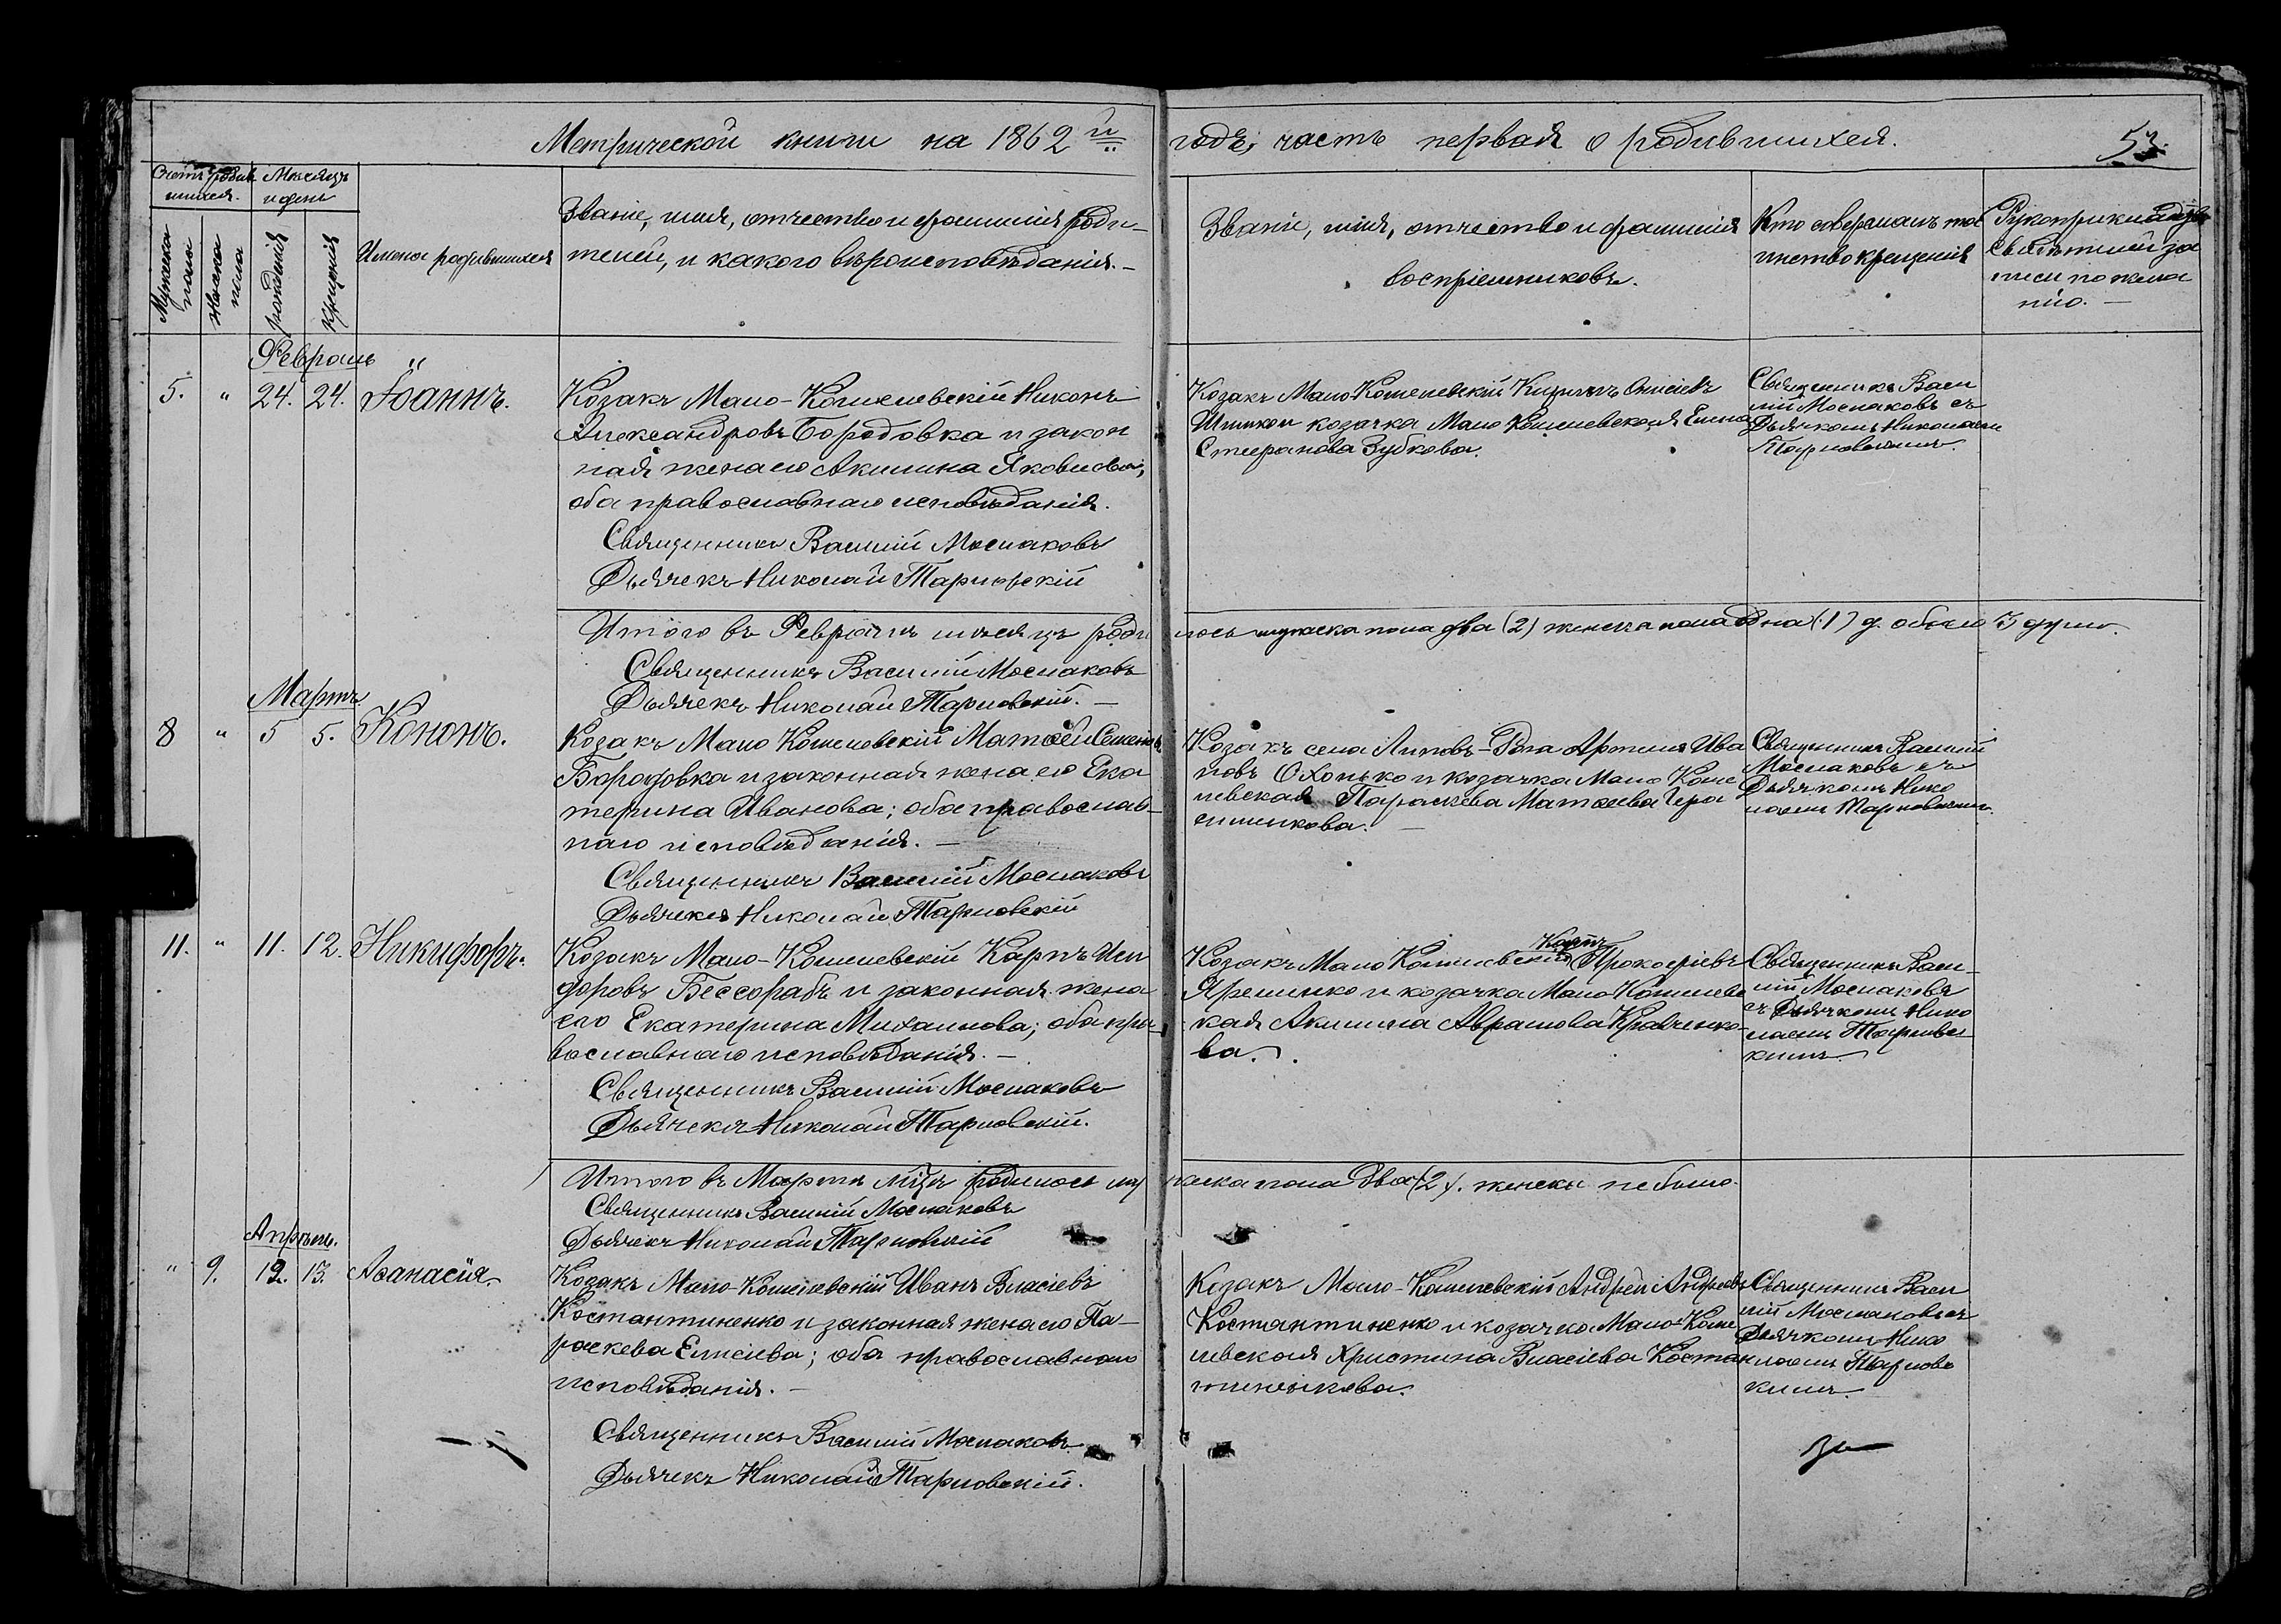 Метрической книги на 1862й годъ, часть первая о родившихся.
53.
Счетъ родив
шихся.
Мѣсяцъ
и день
Мужеска
пола
Женска
пола
рожденія
крещенія
Имена родившихся
Званіе, имя, отчество и фамилія роди-
телей, и какого вѣроисповѣданія.-
Званіе, имя, отчество и фамилія
воспріемниковъ.
Кто совершалъ таи
инство крещенія
Рукоприкладство
свидѣтелей за
писи по жела
нію. -
Февраль
5. " 24. 24. Іоаннъ.
Козакъ Мало-Кошелевскій Никонъ
Александровъ Бородовка и закон
ная жена его Акилина Яковлева,
оба православнаго исповѣданія.
Священникъ Василій Мослаковъ
Дьячекъ Николай Тарновскій
Козакъ Мало-Кошелевскій Онисіевъ
и козачка Мало Кошелевская Елена
Стефанова Зубкова.
Священникъ Васи
лій Мослаковъ съ
Дьячкомъ Николаемъ
Тарновскимъ.
Итого въ Февралѣ мѣсяцѣ родилось мужеска пола два (2) женска пола одна (1) а обоего 3 души.
Священникъ Василій Мослаковъ
Дьячекъ Николай Тарновскій. -
Мартъ
8 " 5 5. Кононъ.
Козакъ Мало Кошелевскій Матѳей Семеновъ
Бородовка и законная жена его Ека
терина Иванова; оба православ-
наго исповѣданія. -
Священникъ Василій Мослаковъ
Дьячекъ Николай Тарновскій
Козакъ села Липовъ-Рога Ива
новъ Охонько и козачка Мало Коше
левская Параскева Матѳеева Гера
сименкова. -
Священникъ Василій
Мослаковъ съ
Дьячкомъ Нико
лаемъ Тарновскимъ.
11. " 11. 12. Никифоръ.
Козакъ Мало-Кошелевскій Карпъ Иси
доровъ Бессорабъ и законная жена
его Екатерина Михаилова; оба пра-
вославнаго исповѣданія. -
Священникъ Василій Мослаковъ
Дьячекъ Николай Тарновскій.
Карпъ
Козакъ Мало Кошелевскій Прокофіевъ
Яременко и козачка Мало-Кошелевс
кая Акилина Аврамова Кравченко-
ва.
Священникъ Васи-
лій Мослаковъ
съ Дьячкомъ Нико
лаемъ Тарновс
кимъ.
Итого въ Мартѣ мѣцѣ родилось мужеска пола два (2). женска не было.
Священникъ Василій Мослаковъ
Дьячекъ Николай Тарновскій
Апрѣль.
" 9. 12. 13. Аѳанасія.
Козакъ Мало-Кошелевскій Иванъ Власіевъ
Костантиненко и законная жена его Па-
раскева Елисіева; оба православнаго
исповѣданія. -
Священникъ Василій Мослаковъ
Дьячекъ Николай Тарновскій.
Козакъ Мало-Кошелевскій Андрей Андреевъ
Костантиненко и козачка Мало-Коше
левская Христина Власіева Костан
тиненкова.
Священникъ Васи
лій Мослаковъ съ
Дьячкомъ Нико
лаемъ Тарновс
кимъ.